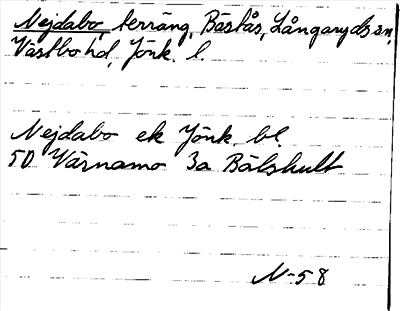 Nejdabo, terräng, Båstås, Långaryds sn,
Västbo hd, Jönk. l.
Nejdabo ek Jönk. bl.
5D Värnamo 3a Bölshult
N-58